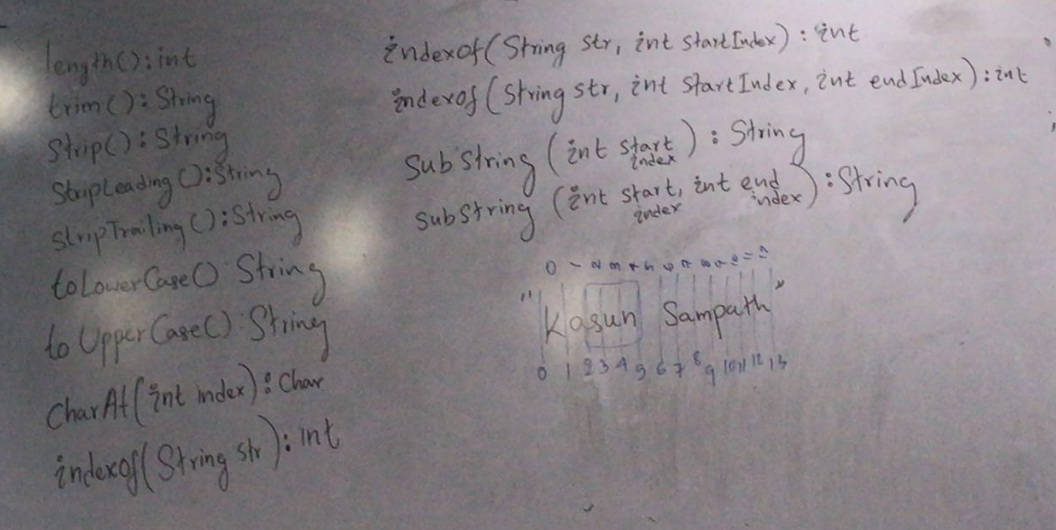 length(): int
trim(): String
Strip(): String
StripLeading(): String
StripTrailing(): String
toLowerCase(): String
to UpperCase(): String
CharAt(int index): Char
indexof(String str): int
indexof(String str, int StartIndex): int
indexof(String str, int StartIndex, int endIndex): int
SubString (int start index): String
SubString (int start index, int end index): String
0 1 2 3 4 5 6 7 8 9 10 11 12
"Kasun Sampath"
0 1 2 3 4 5 6 7 8 9 10 11 12 13